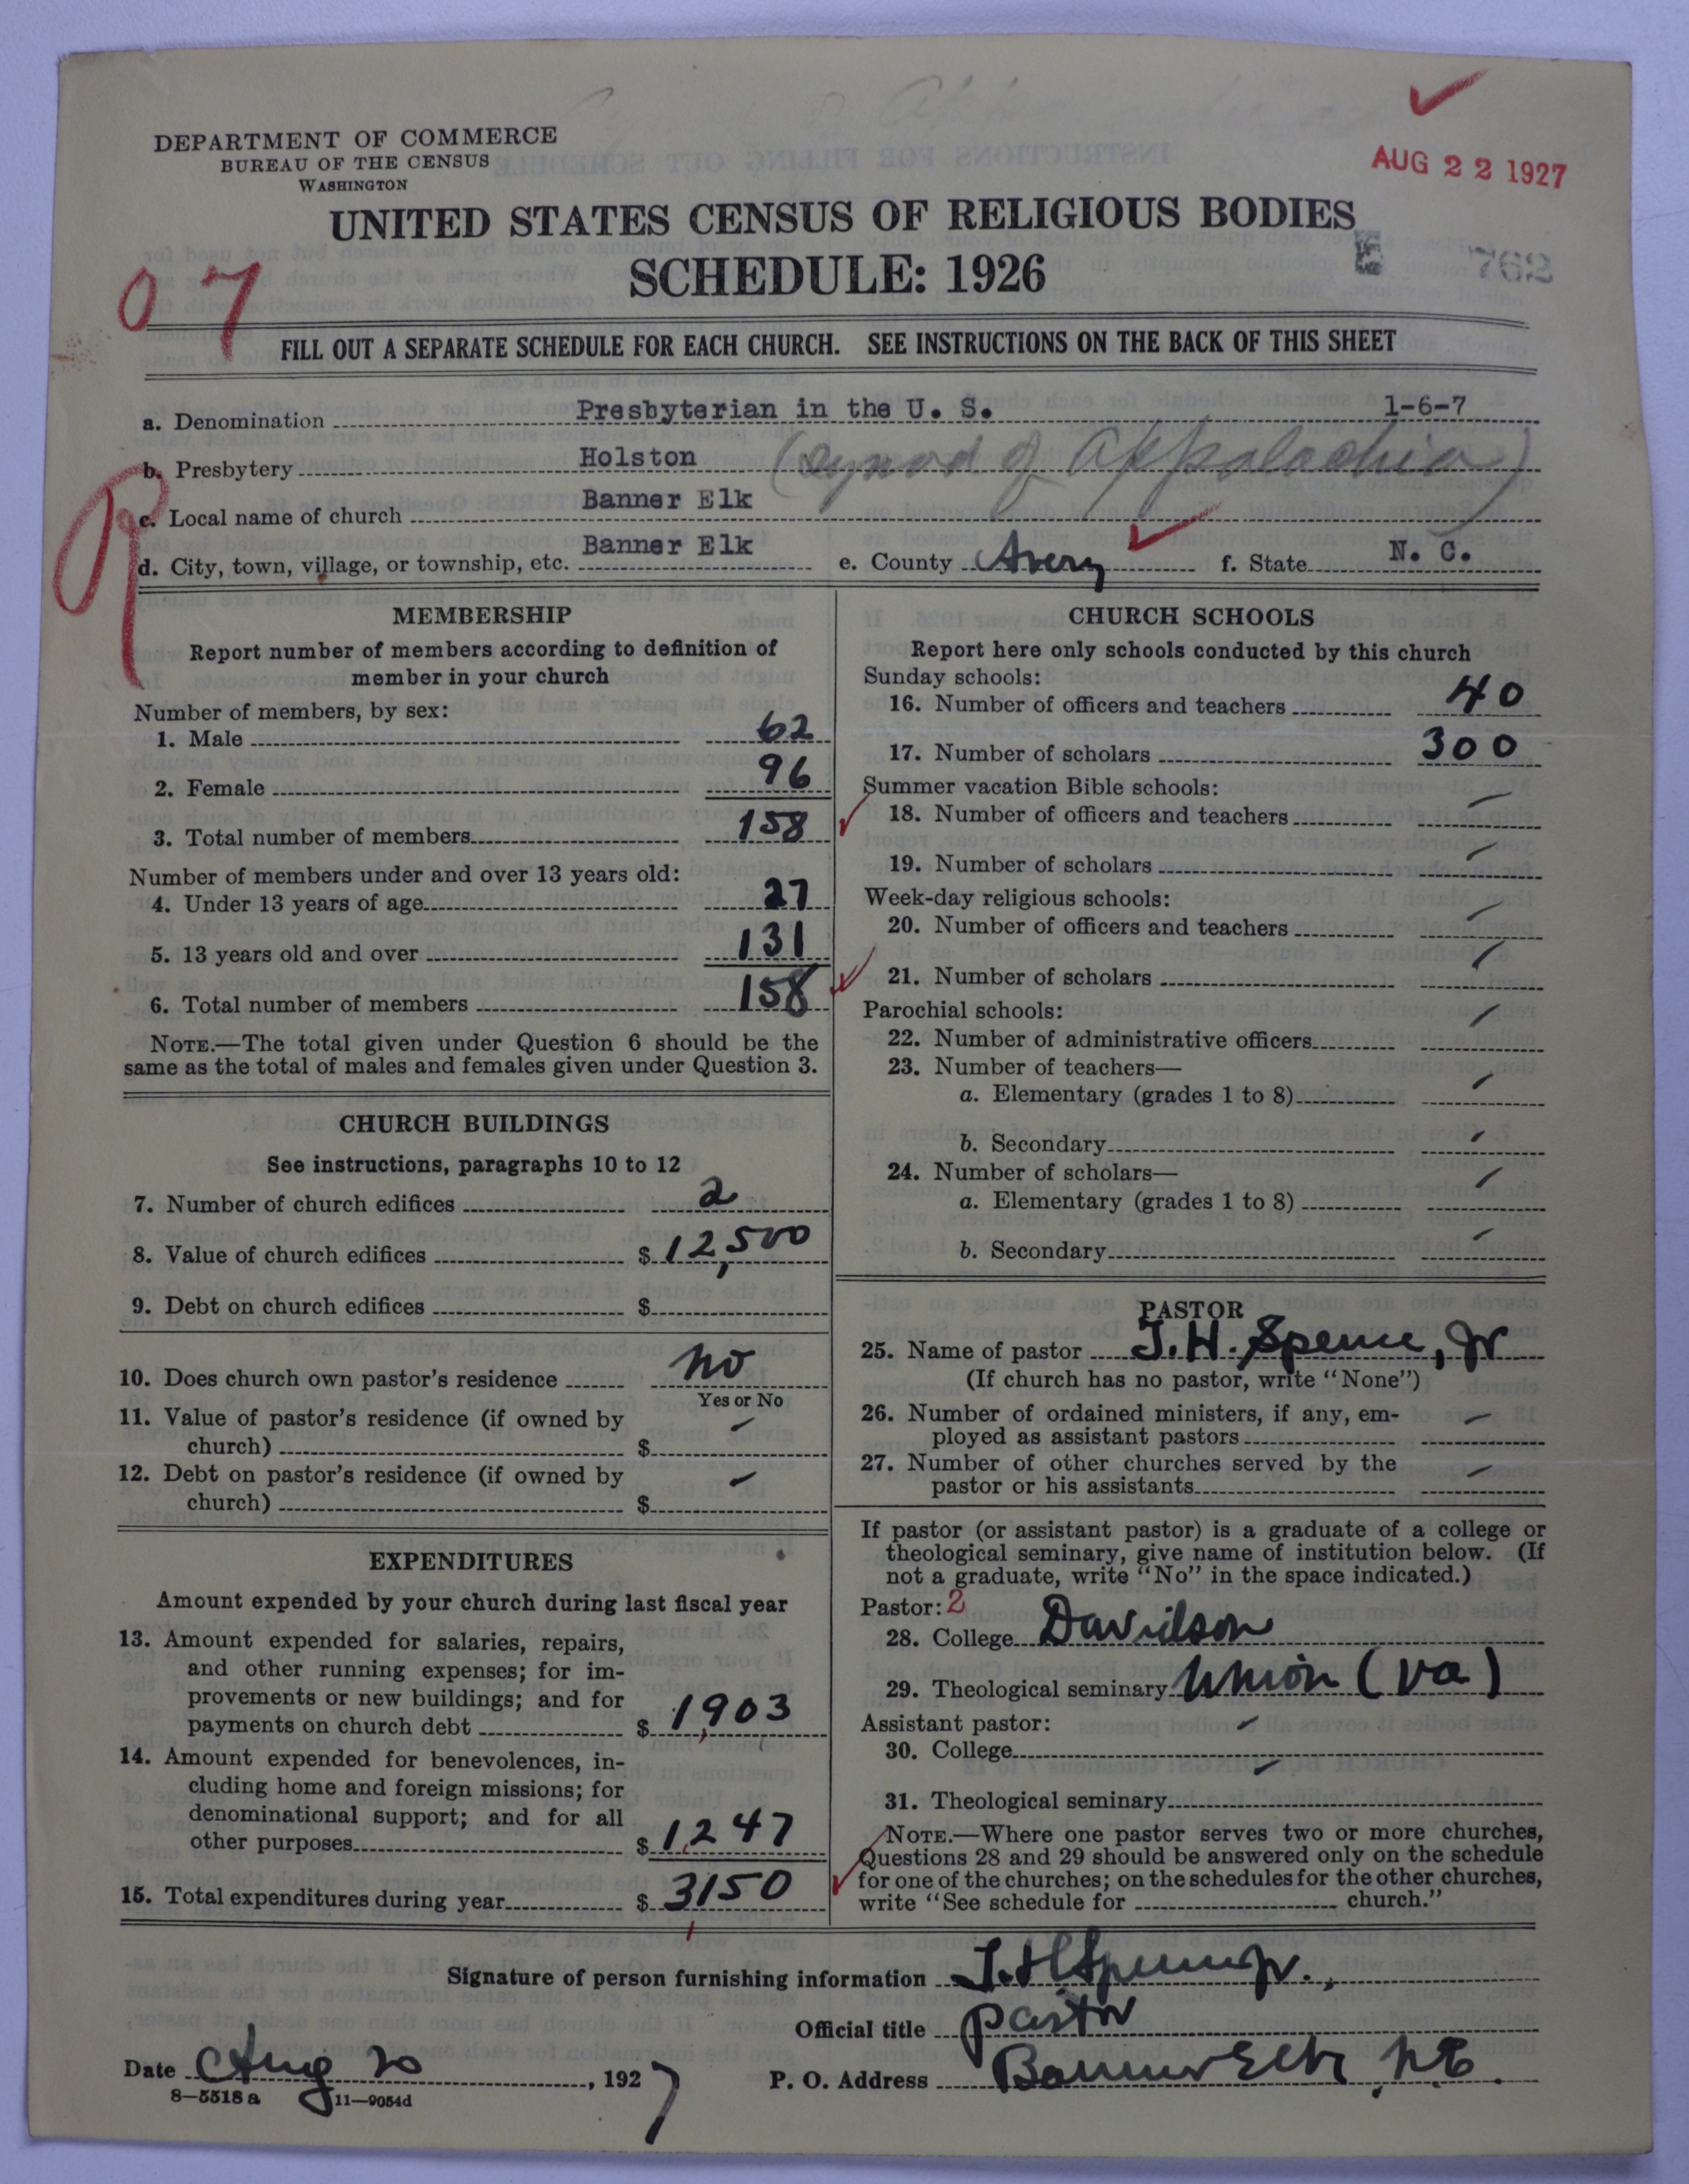 DEPARTMENT OF COMMERCE
BUREAU OF THE CENSUS
WASHINGTON
AUG 22 1927
UNITED STATES CENSUS OF RELIGIOUS BODIES
SCHEDULE: 1926
07
FILL OUT A SEPARATE SCHEDULE FOR EACH CHURCH. SEE INSTRUCTIONS ON THE BACK OF THIS SHEET
a. Denomination Presbyterian in the U. S. 1-6-7
b. Presbytery Holston (Synod of Appalachia)
R
c. Local name of church Banner Elk
d. City, town, village, or township, etc. Banner Elk e. County Avery f. State N. C.
MEMBERSHIP
Report number of members according to definition of
member in your church
Number of members, by sex:
1. Male 62
2. Female 96
3. Total number of members 158
Number of members under and over 13 years old:
4. Under 13 years of age 27
5. 13 years old and over 131
6. Total number of members 158
NOTE.—The total given under Question 6 should be the
same as the total of males and females given under Question 3.
CHURCH BUILDINGS
See instructions, paragraphs 10 to 12
7. Number of church edifices 2
8. Value of church edifices $ 12,500
9. Debt on church edifices $
10. Does church own pastor's residence No
Yes or No
11. Value of pastor's residence (if owned by
church) $
12. Debt on pastor's residence (if owned by
church) $
EXPENDITURES
Amount expended by your church during last fiscal year
13. Amount expended for salaries, repairs,
and other running expenses; for im-
provements or new buildings; and for
payments on church debt $ 1,903
14. Amount expended for benevolences, in-
cluding home and foreign missions; for
denominational support; and for all
other purposes $ 1,247
15. Total expenditures during year $ 3,150
CHURCH SCHOOLS
Report here only schools conducted by this church
Sunday schools:
16. Number of officers and teachers 40
17. Number of scholars 300
Summer vacation Bible schools:
18. Number of officers and teachers
19. Number of scholars
Week-day religious schools:
20. Number of officers and teachers
21. Number of scholars
Parochial schools:
22. Number of administrative officers
23. Number of teachers—
a. Elementary (grades 1 to 8)
b. Secondary
24. Number of scholars—
a. Elementary (grades 1 to 8)
b. Secondary
PASTOR
25. Name of pastor T. H. Spence, Jr
(If church has no pastor, write "None")
26. Number of ordained ministers, if any, em-
ployed as assistant pastors
27. Number of other churches served by the
pastor or his assistants
If pastor (or assistant pastor) is a graduate of a college or
theological seminary, give name of institution below. (If
not a graduate, write "No" in the space indicated.)
Pastor: 2
28. College Davidson
29. Theological seminary Union (Va)
Assistant pastor:
30. College
31. Theological seminary
NOTE.—Where one pastor serves two or more churches,
Questions 28 and 29 should be answered only on the schedule
for one of the churches; on the schedules for the other churches,
write "See schedule for church."
Signature of person furnishing information T. H. Spence Jr.,
Official title Pastor
Date Aug 20, 1927 P. O. Address Banner Elk, N.C.
8—5518 a 11—9054d